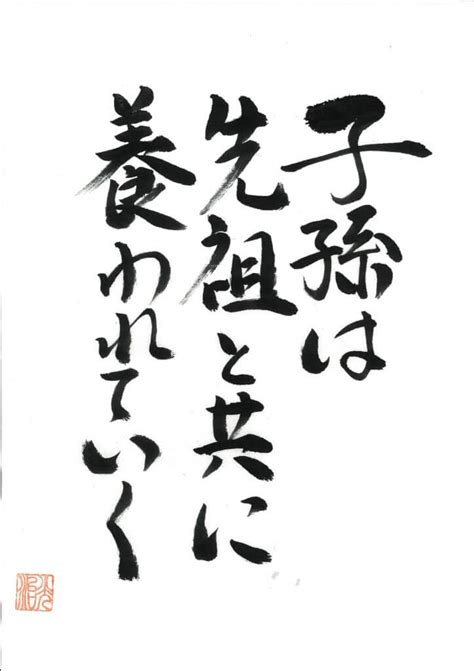 子孫は
先祖と共に
養われていく